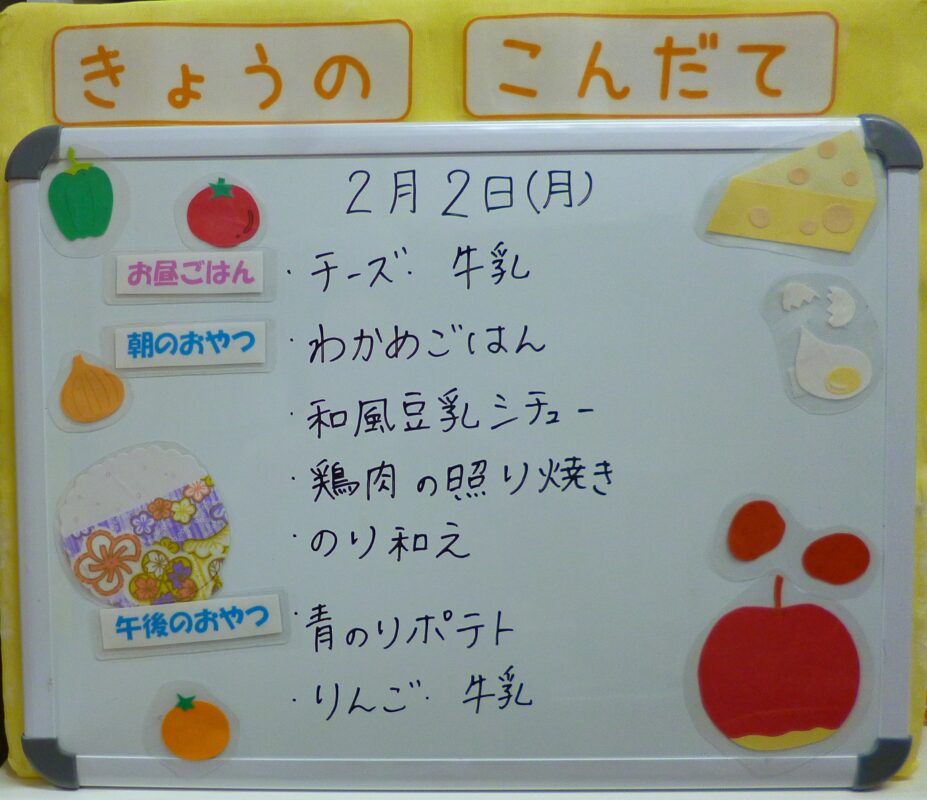 きょうの こんだて
2月2日(月)
お昼ごはん ・チーズ・ 牛乳
朝のおやつ ・わかめごはん
・和風豆乳シチュー
・鶏肉の照り焼き
・のり和え
午後のおやつ ・青のりポテト
・りんご・ 牛乳